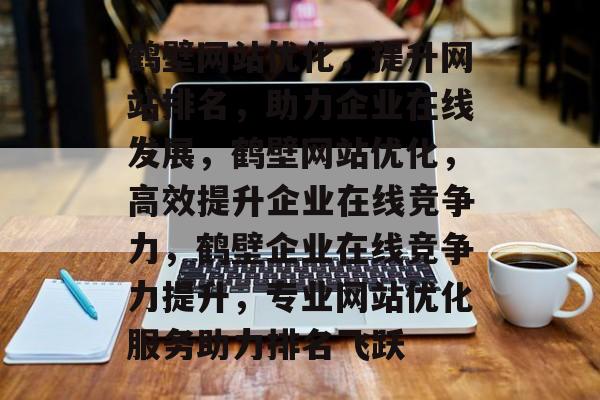 鹤壁网站优化，提升网
站排名，助力企业在线
发展，鹤壁网站优化，
高效提升企业在线竞争
力，鹤壁企业在线竞争
力提升，专业网站优化
服务助力排名飞跃